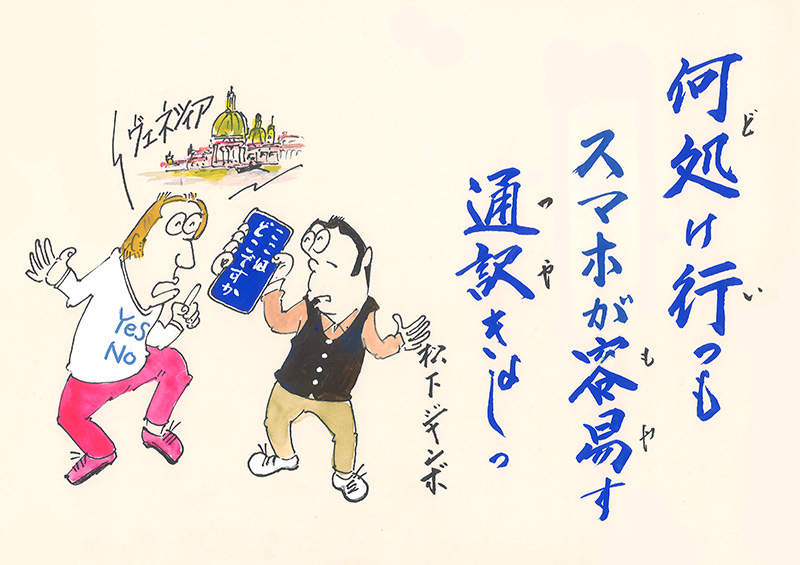 何処け行っも
ど い
スマホが容易す
もや
通訳きなしっ
つや
ヴェネツィア
ここは
どこですか
Yes
No
松下ジャンボ